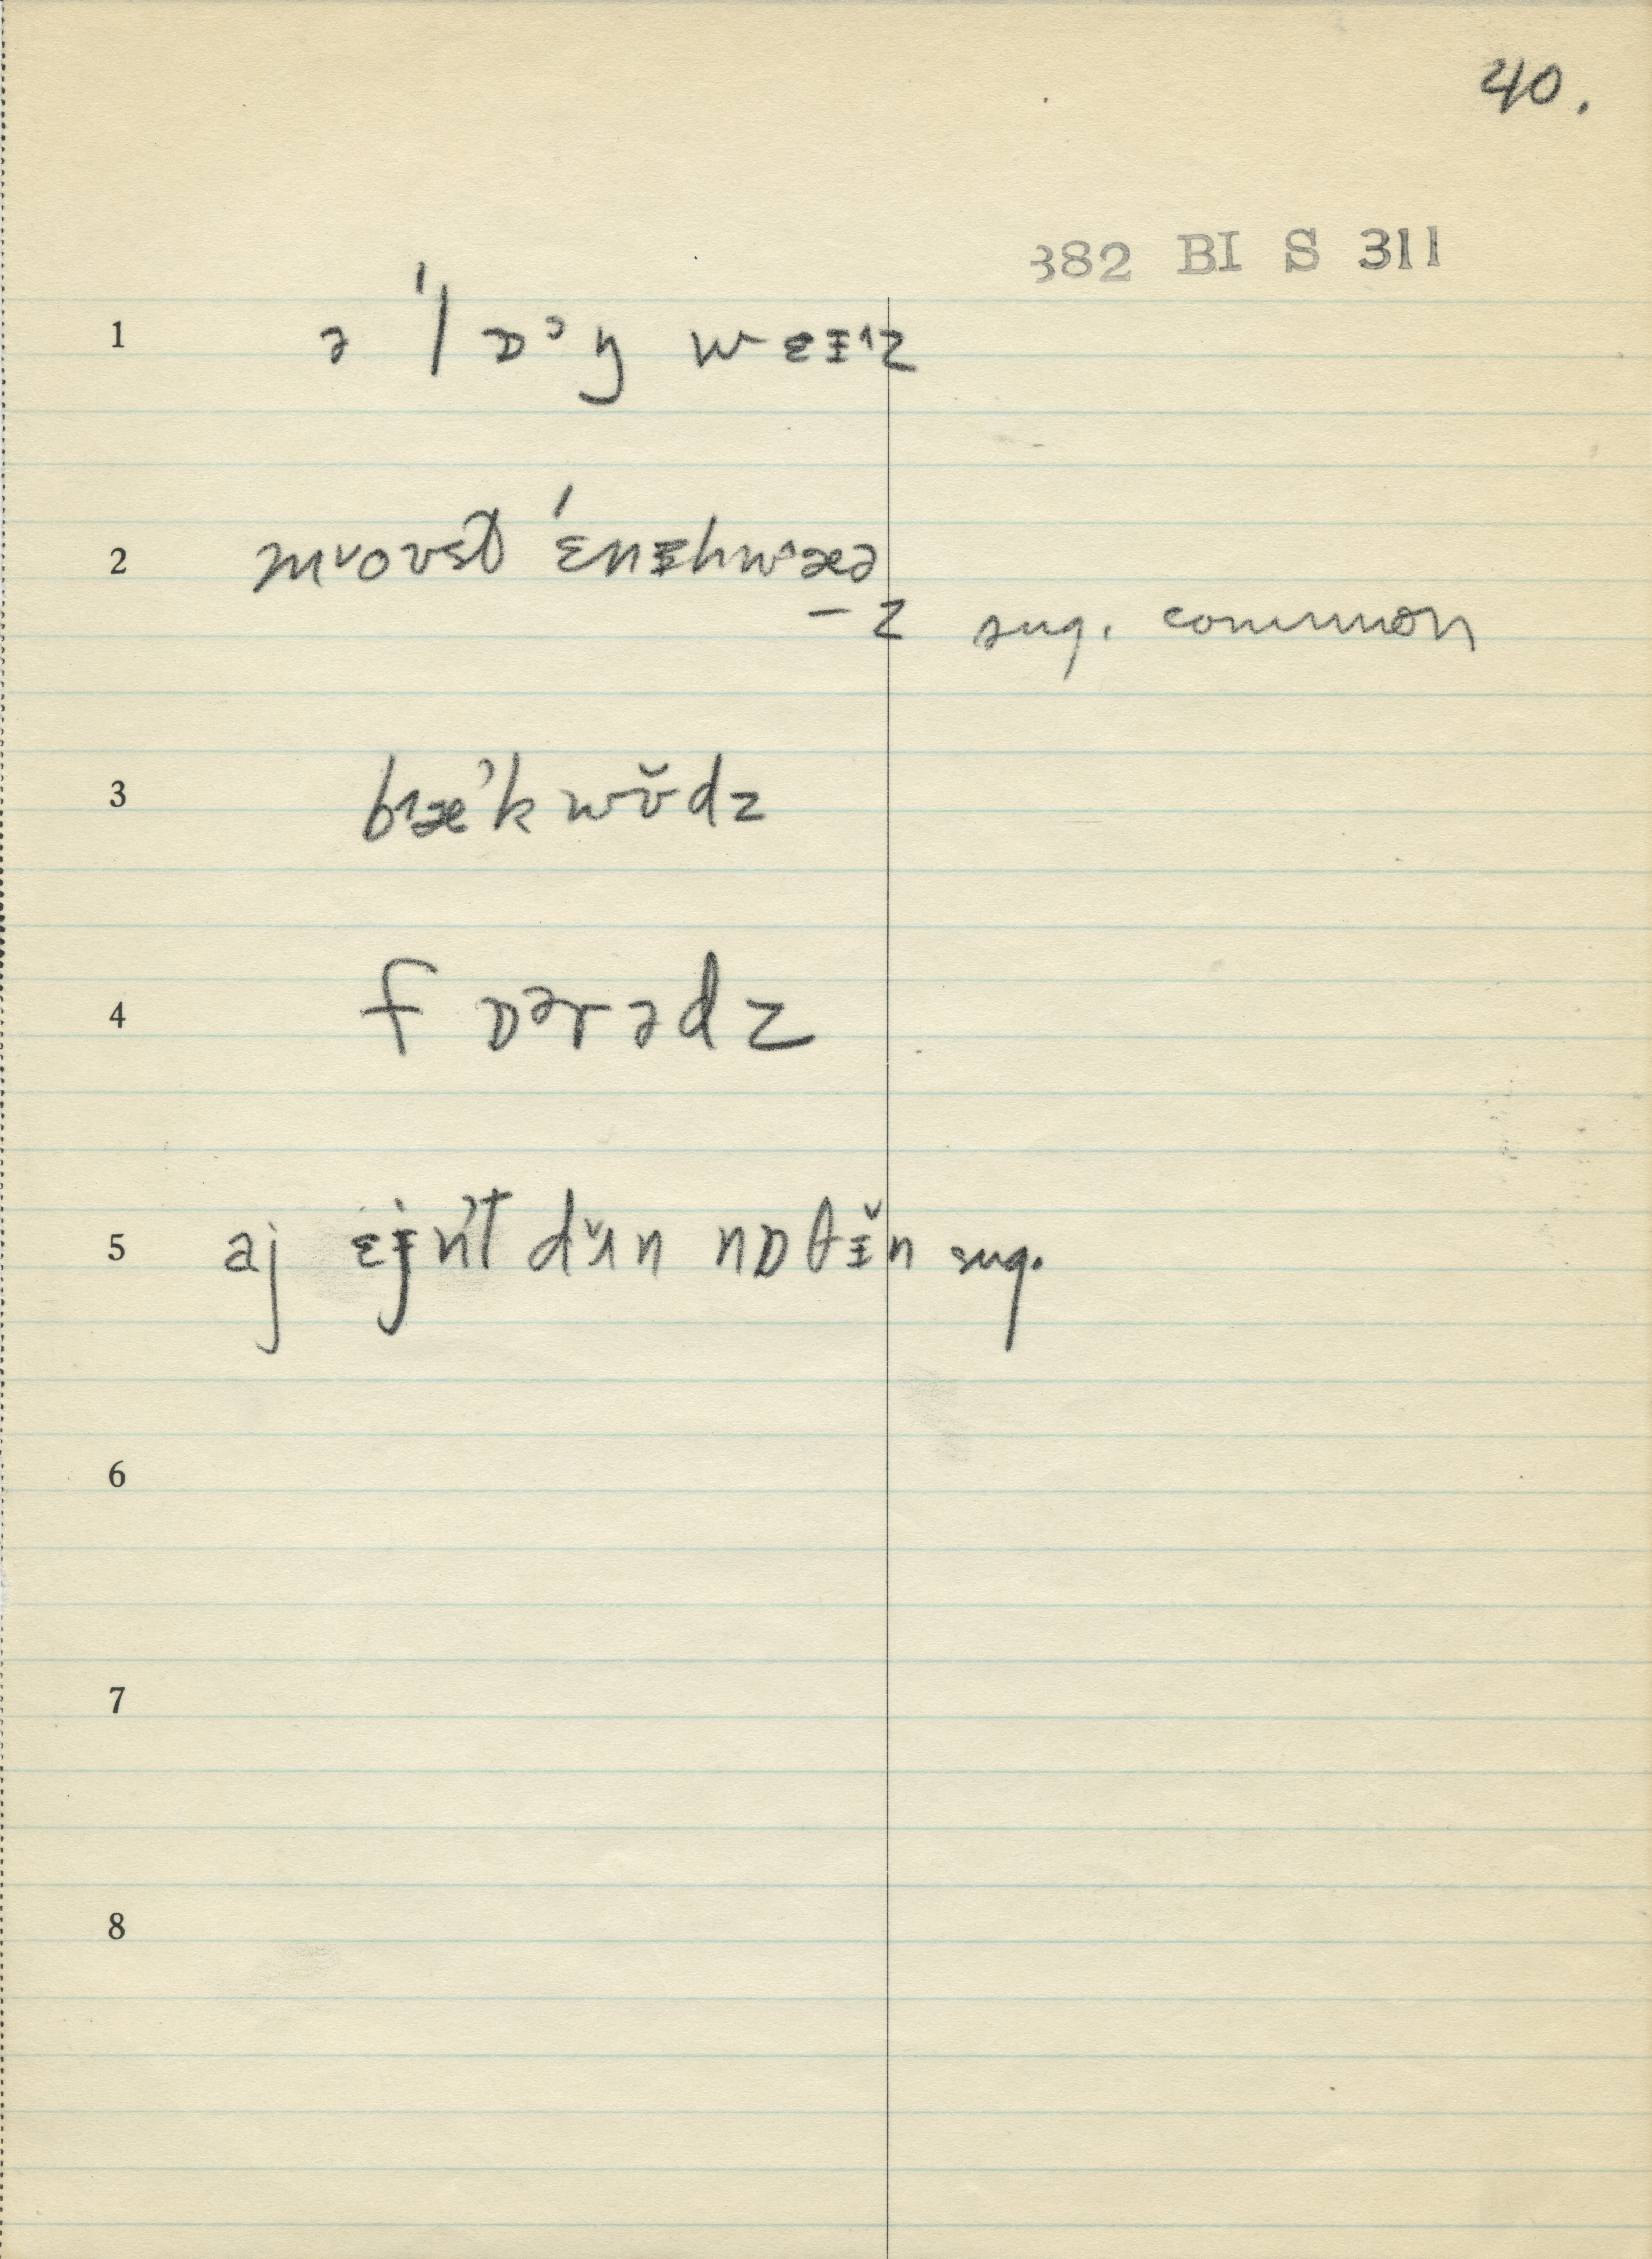 40.
382 BI S 311
1 ə ˈlɒᵊŋ wɛɪ^z
2 mᵛoʊst ˈɛnɪhwᵊæə
–z sug. common
3 bᶺæˈk wʊ̆dz
4 fɒᵊrədz
5 aj ɛjn't dʌ̆n nɒθɪ̆n sug.
6
7
8